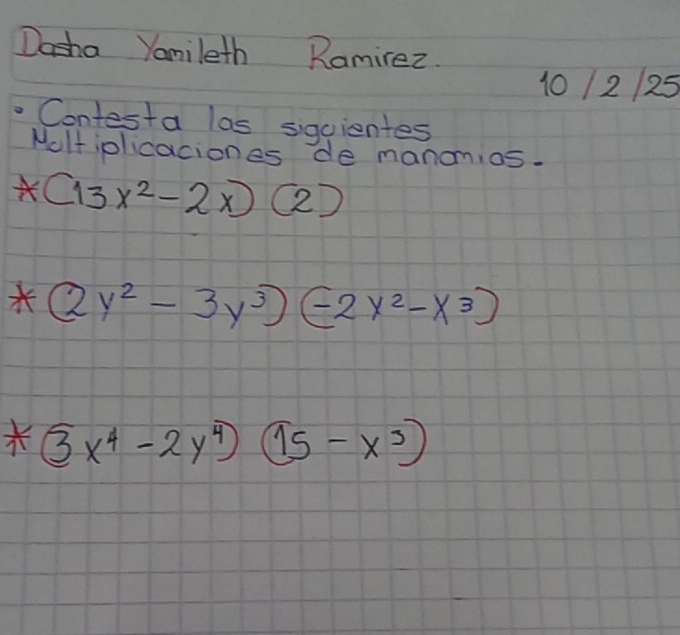 Dasha Yamileth Ramirez.
10/2/25
• Contesta las siguientes
Multiplicaciones de manomios.
*(13x²-2x) (2)
*(2y²-3y³) (-2y²-x³)
*(3x⁴-2y⁴) (15-x³)